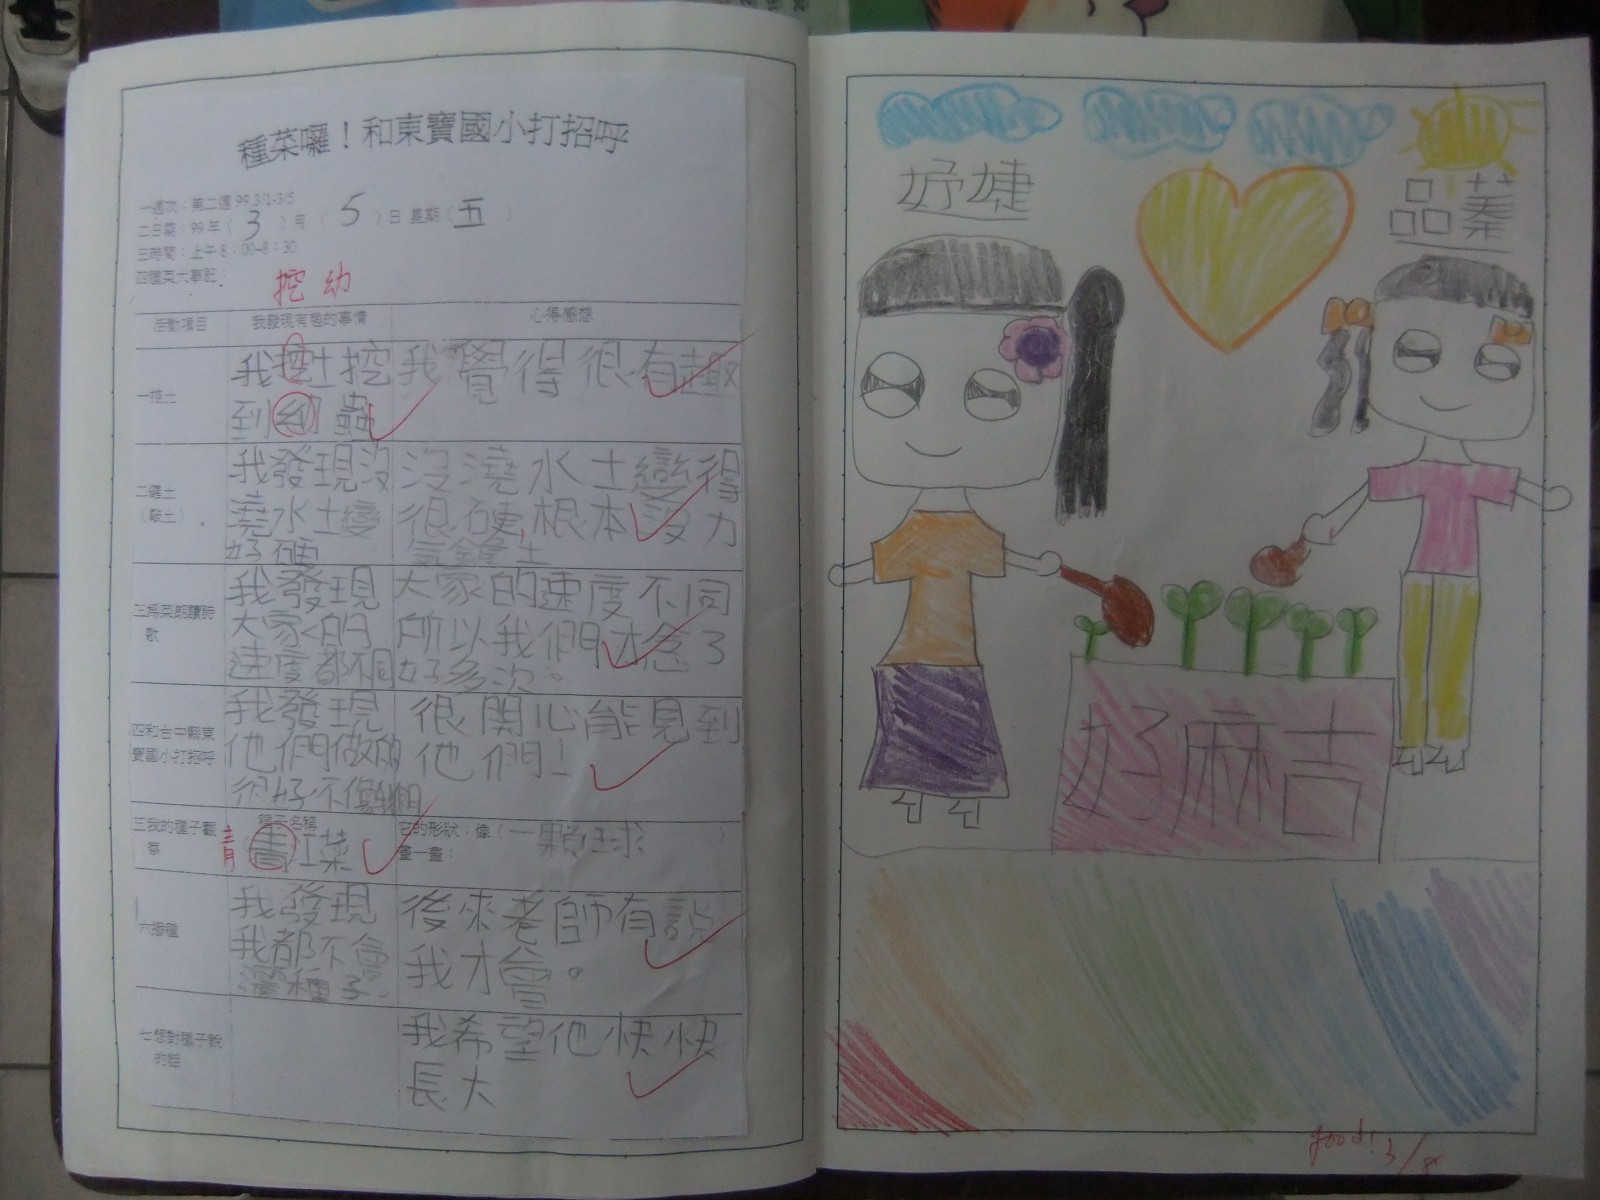 種菜囉！和東寶國小打招呼
一週次：第二週 99.3/1-3/5
二日期：99年（3）月（5）日 星期（五）
三時間：上午8：00-8：30
四種菜大事記：
挖 幼
活動項目 我發現有趣的事情 心得感想
一挖土
我挖土挖
到幼蟲
我覺得很有趣
二鏟土
（鬆土）
我發現沒
澆水土變
好硬
沒澆水土變得
很硬，根本沒力
氣鏟土
三為菜朗讀詩
歌
我發現
大家的
速度都不同
大家的速度不同
所以我們才念了
好多次。
四和台中縣東
寶國小打招呼
我發現
他們做的
很好不像我們
很開心能見到
他們！
五我的種子觀
察
種子名稱
青
江菜
它的形狀：像（一顆球）
畫一畫：
六播種
我發現
我都不會
灑種子。
後來老師有說
我才會。
七想對種子說
的話
我希望他快快
長大
妤婕
品蓁
好麻吉
good! 3/8